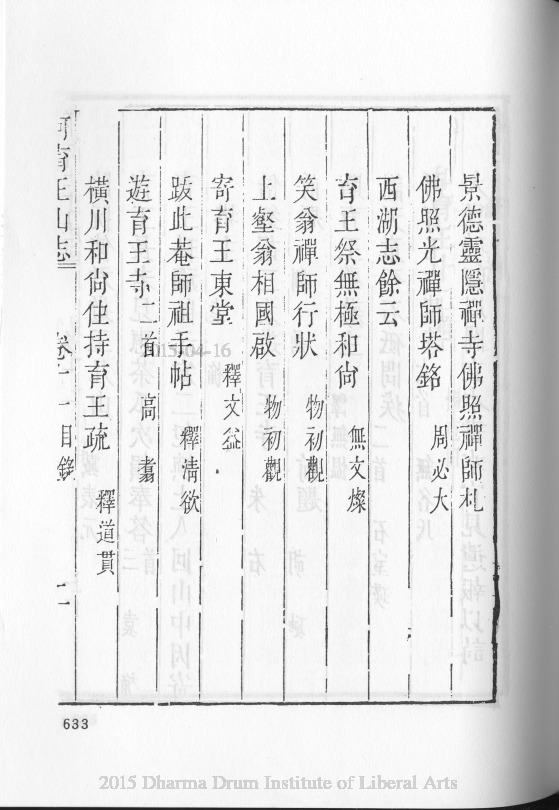 景德靈隱禪寺佛照禪師札
佛照光禪師塔銘 周必大
西湖志餘云
育王祭無極和尙 無文燦
笑翁禪師行狀 物初觀
上壑翁相國啟 物初觀
寄育王東堂 釋文益
跋此菴師祖手帖 釋清欲
遊育王寺二首 高翥
橫川和尙住持育王疏 釋道貫
阿育王山志 卷十一目錄
2015-04-16
633
2015 Dharma Drum Institute of Liberal Arts